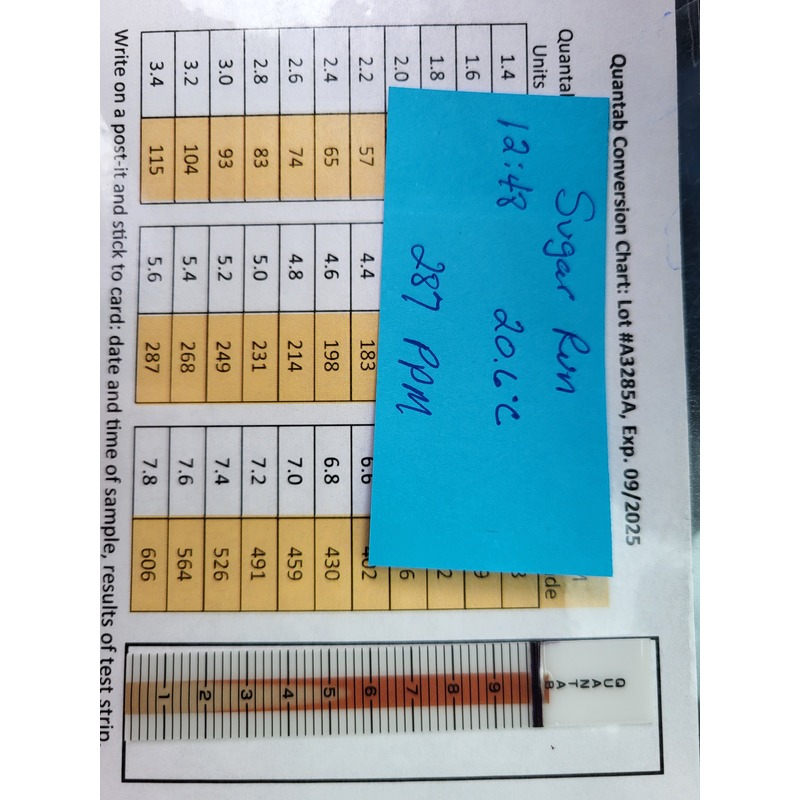 Quantab Conversion Chart: Lot #A3285A, Exp. 09/2025
Sugar Run
12:48 20.6°C
287 PPM
Units
1.4
1.6
1.8
2.0
2.2 57 4.4 183 6.6
2.4 65 4.6 198 6.8 430
2.6 74 4.8 214 7.0 459
2.8 83 5.0 231 7.2 491
3.0 93 5.2 249 7.4 526
3.2 104 5.4 268 7.6 564
3.4 115 5.6 287 7.8 606
Write on a post-it and stick to card: date and time of sample, results of test strip
QUANTAB
9
8
7
6
5
4
3
2
1